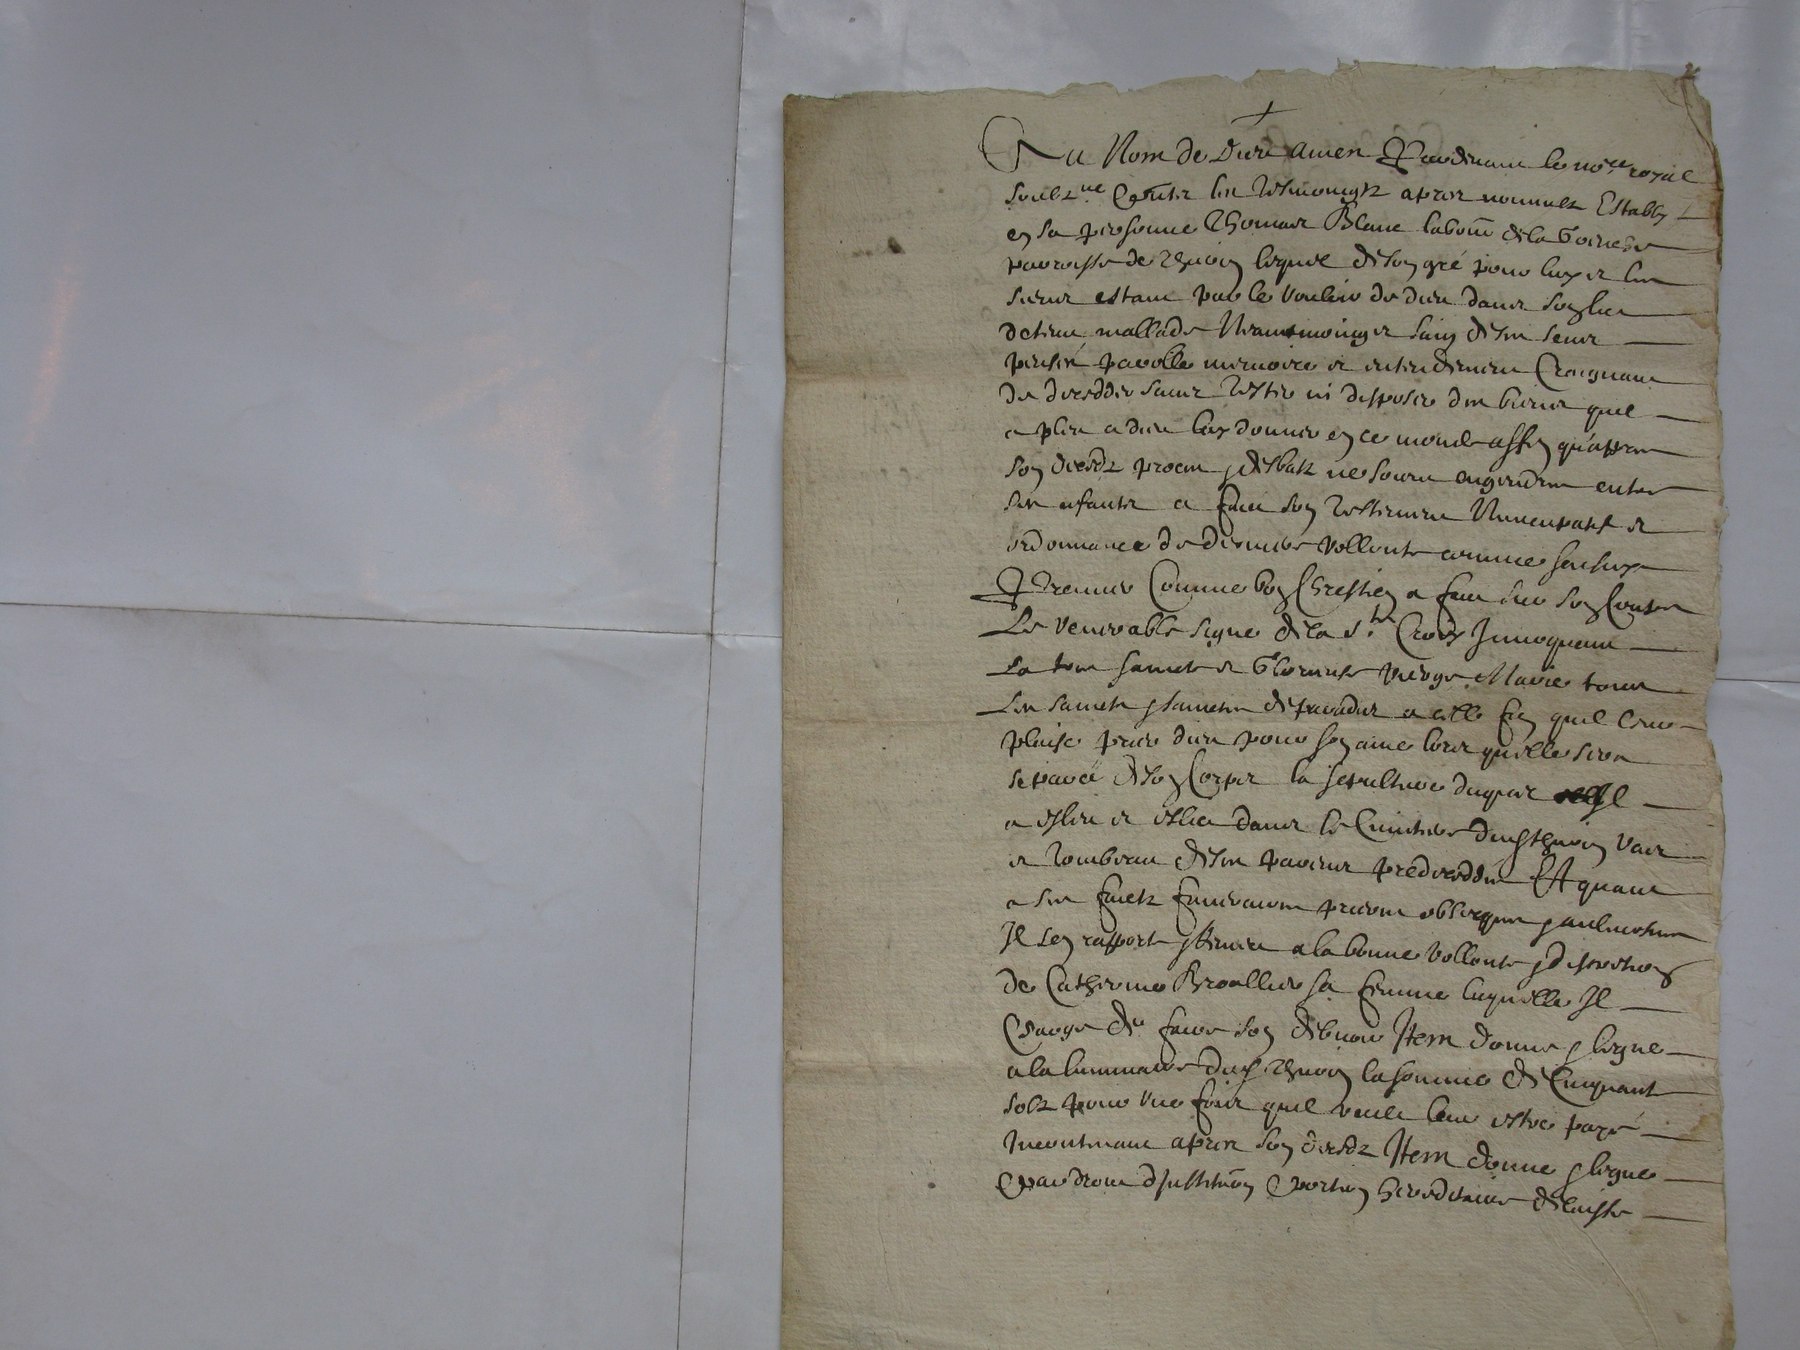 Au Nom de Dieu Amen Pardevant le no.re royal
soubz.né Contr les tesmoingz apres nommes Estably
en sa personne Thomas Blanc labour de la
parroisse de lequel de son gré pour luy et les
siens estant par le vouloir de dieu dans son lict
detenu mallade Neantmoings sain de ses sens
pensée parolle memoire et entendement Craignant
de decedder sans tester ni disposer des biens quil
a pleu a dieu luy donner en ce monde affin qu'appres
son decedz proces et debatz ne soient engendres entre
ses enfants a faict son testement Nuncupatif et
ordonnance de derniere vollonte comme sensuyt
Premier Comme bon Chrestien a faict sur son Corps
Le venerable signe de la s.te Croix Invoquant
La tres saincte et Glorieuse vierge Marie tous
Les saincts et sainctes de paradis a celle fin quil leur
plaise prier dieu pour son ame lors quelle sera
separée de son Corps la sepulture duquel Il
a esleu et eslict dans le Cimetiere dud vas
et tombeau de ses parens predeceddés Et quant
a ses faictz funeraires prieres obseques et aulmosnes
Il sen rapporte et remet a la bonne vollonte et discretion
de Catherine sa femme laquelle Il
Charge de faire son debvoir Item donne et legue
a la luminaire dud la somme de Cinquant
solz pour une fois quil veult leur estre payé
Incontinant apres son decedz Item donne et legue
par droict d'Institution portion hereditaire delaisse